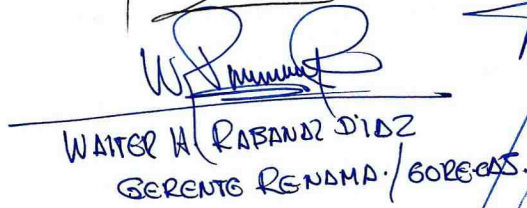 WALTER H. RABANAL DIAZ
GERENTE RENAMA. / GORE-CAJ.